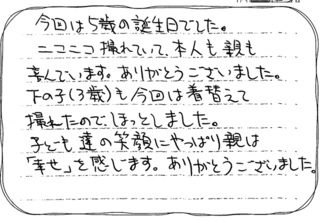 今回は5歳の誕生日でした。
ニコニコ撮れていて、本人も親も
喜んでいます。ありがとうございました。
下の子(3歳)も今回は着替えて
撮れたので、ほっとしました。
子ども達の笑顔にやっぱり親は
「幸せ」を感じます。ありがとうございました。